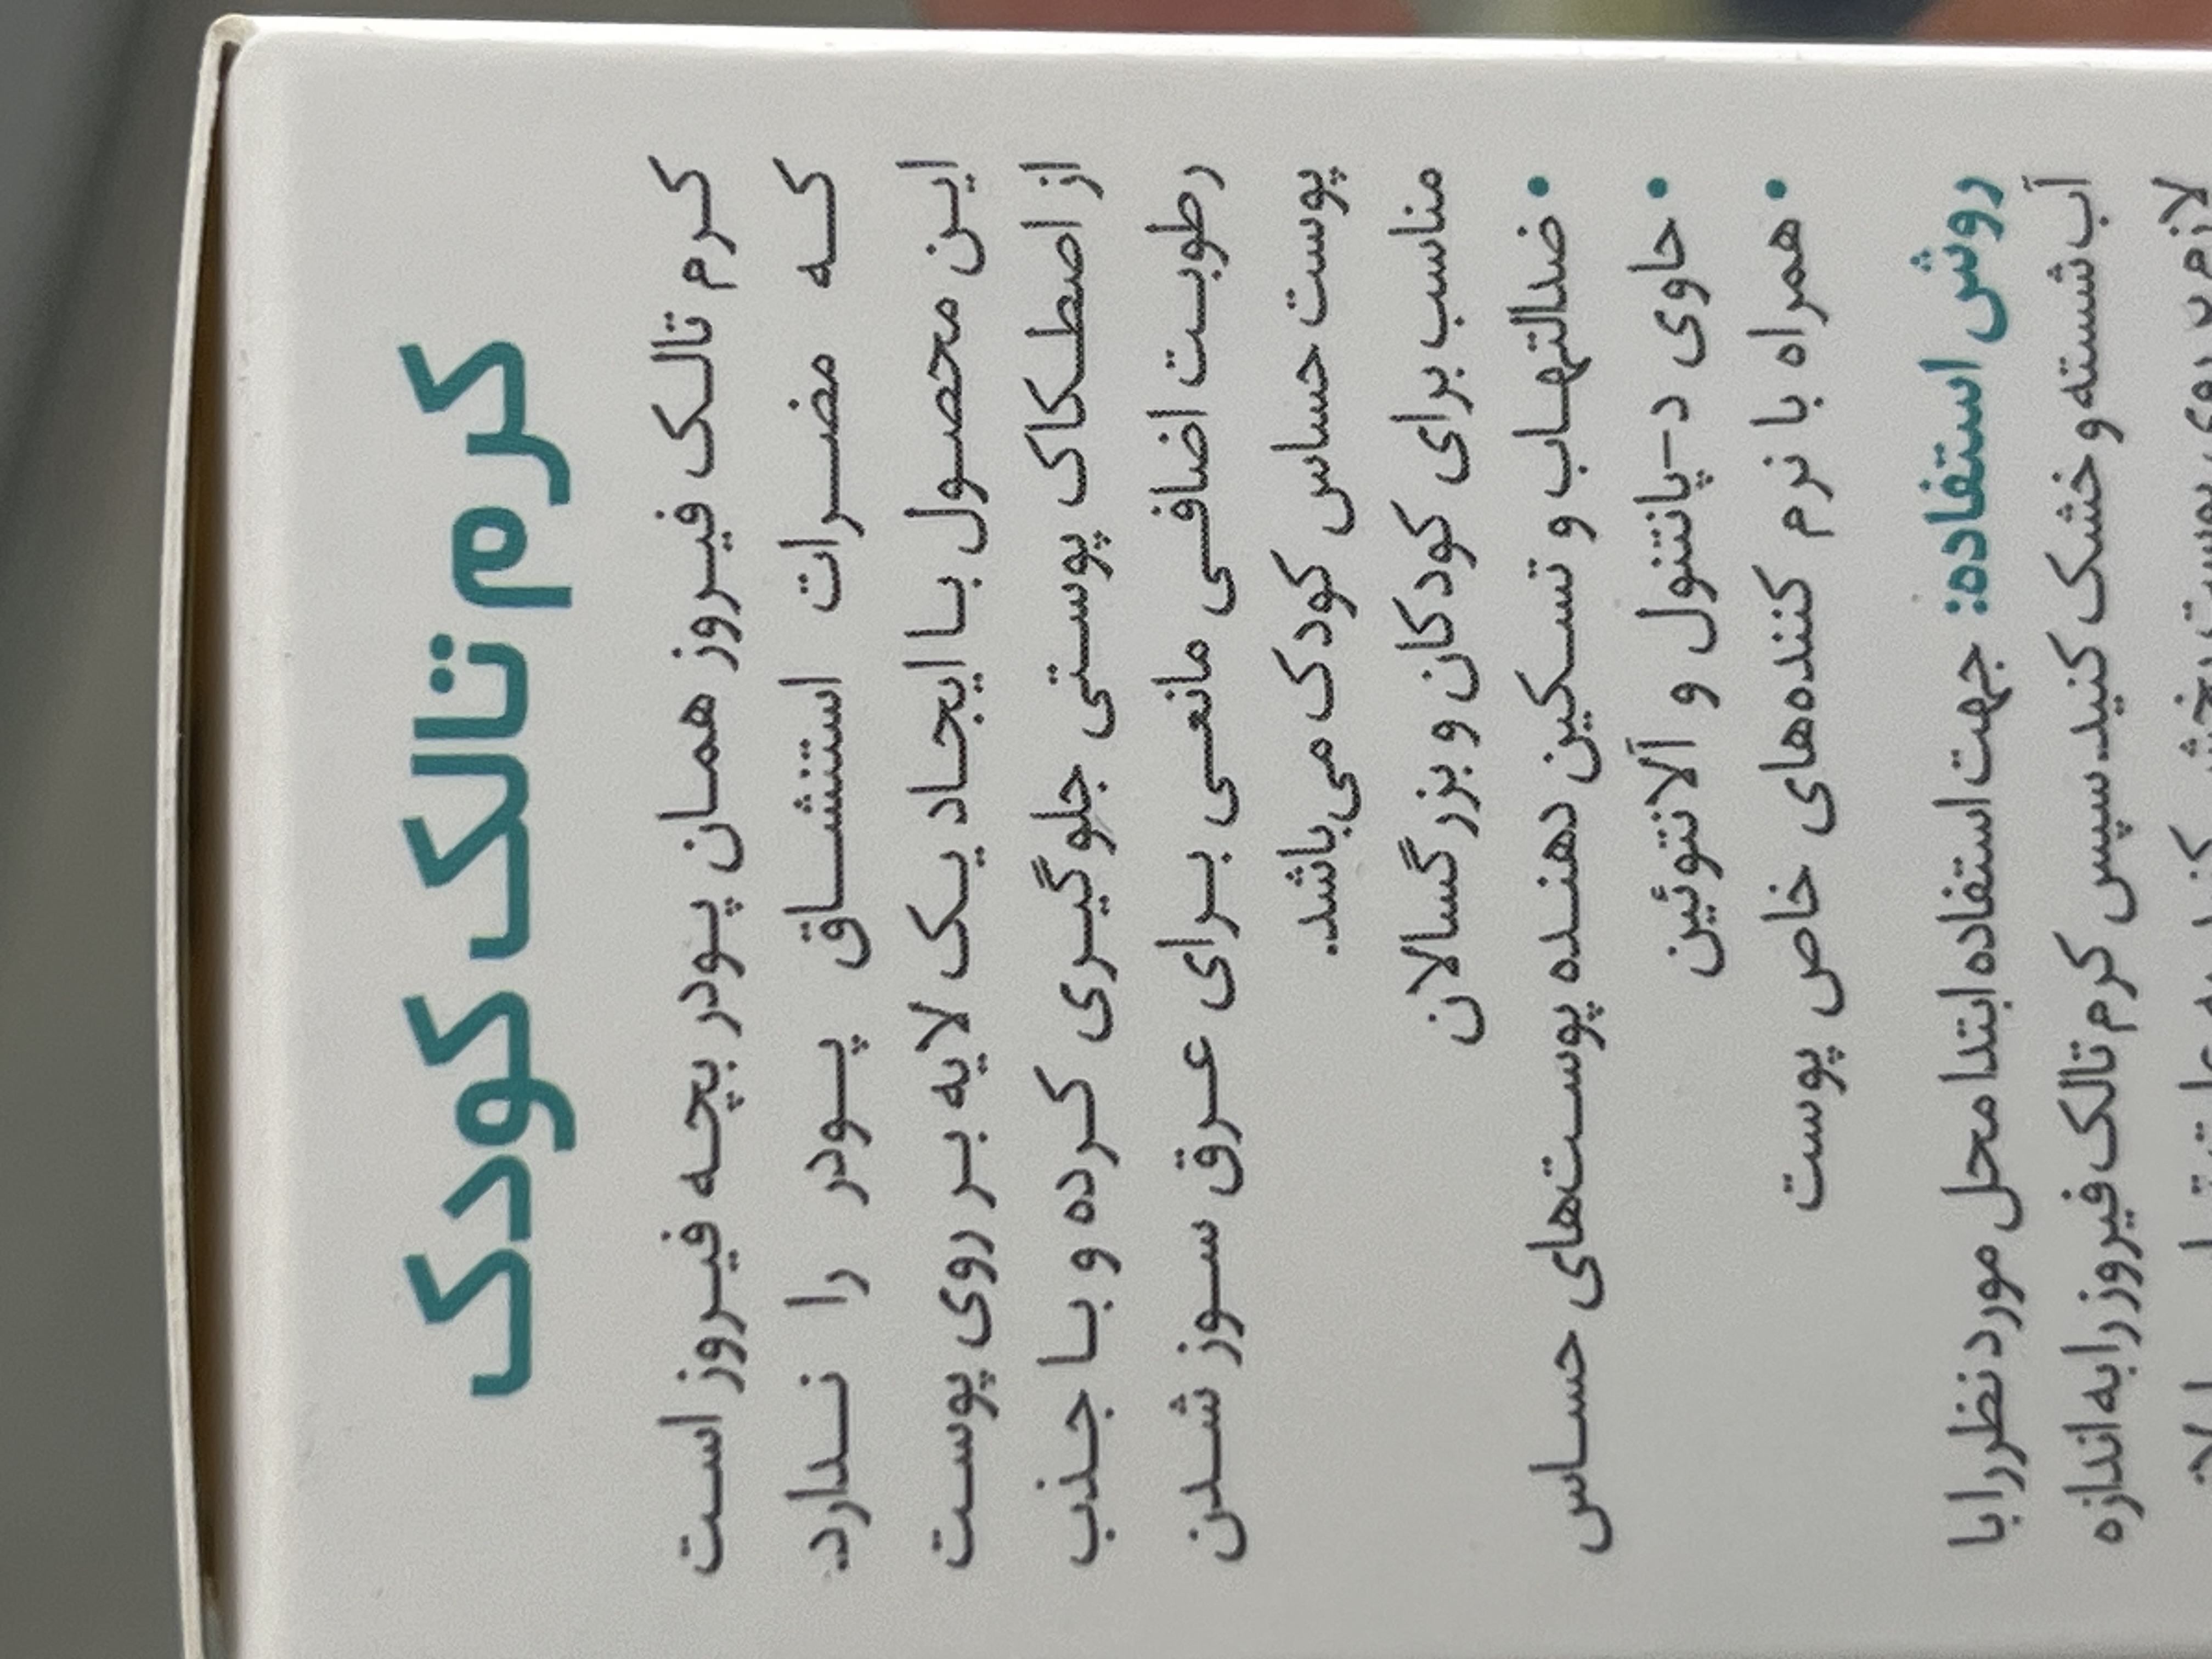 کرم تالک کودک
کرم تالک فیروز همان پودر بچه فیروز است
که مضرات استنشاق پودر را ندارد.
این محصول با ایجاد یک لایه بر روی پوست
از اصطکاک پوستی جلوگیری کرده و با جذب
رطوبت اضافی مانعی برای عرق سوز شدن
پوست حساس کودک می‌باشد.
مناسب برای کودکان و بزرگسالان
• ضدالتهاب و تسکین دهنده پوست‌های حساس
• حاوی د-پانتنول و آلانتوئین
• همراه با نرم کننده‌های خاص پوست
روش استفاده: جهت استفاده ابتدا محل مورد نظر را با
آب شسته و خشک کنید. سپس کرم تالک فیروز را به اندازه
لازم بر روی پوست پخش کنید